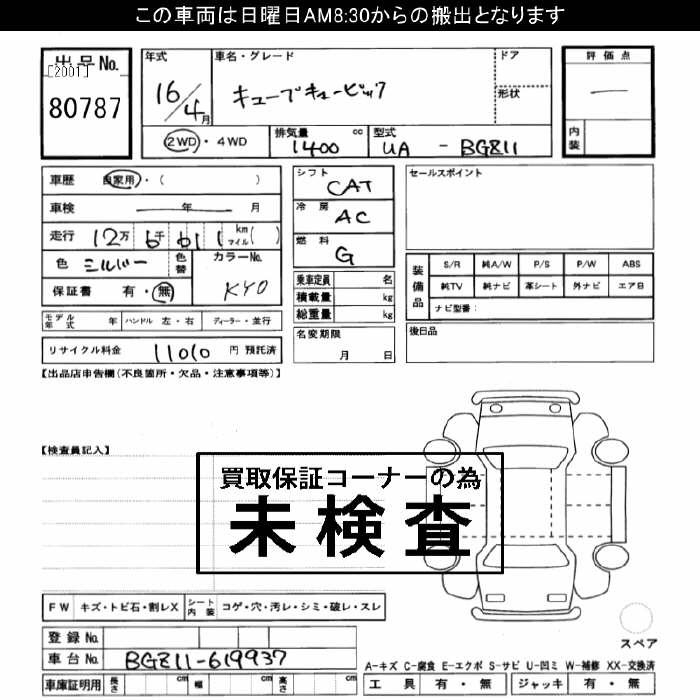 この車両は日曜日AM8:30からの搬出となります
出品No.
[2001]
80787
年式
16/4月
車名・グレード
キューブキュービック
ドア
形状
評価点
―
内装
2WD・4WD
排気量 cc
1400
型式
UA - BGZ11
車歴 自家用・( )
車検 年 月
走行 12万6千611 km マイル( )
色 シルバー 色替
カラーNo.
KY0
保証書 有・無
モデル年式 年 ハンドル 左・右 ディーラー・並行
リサイクル料金 11010 円 預託済
シフト
CAT
冷房
AC
燃料
G
乗車定員 名
積載量 kg
総重量 kg
名変期限
月 日
セールスポイント
装備品
S/R 純A/W P/S P/W ABS
純TV 純ナビ 革シート 外ナビ エアB
ナビ型番:
後日品
【出品店申告欄(不良箇所・欠品・注意事項等)】
【検査員記入】
買取保証コーナーの為
未検査
FW キズ・トビ石・割レX シート内装 コゲ・穴・汚レ・シミ・破レ・スレ
登録No.
車台No. BGZ11-619937
車庫証明用 長さ cm 幅 cm 高さ cm
スペア
A-キズ C-腐食 E-エクボ S-サビ U-凹ミ W-補修 XX-交換済
工具 有・無 ジャッキ 有・無